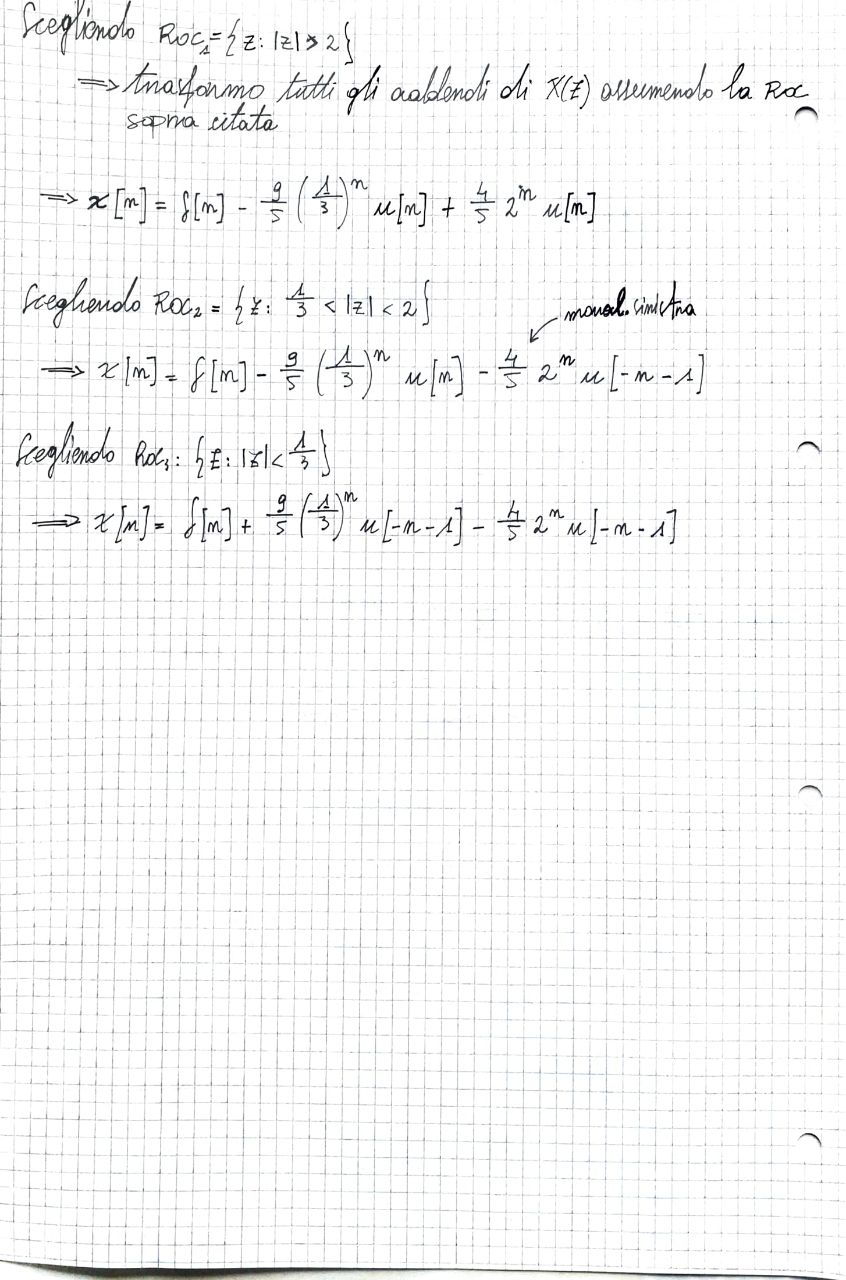 Scegliendo ROC₁ = {z: |z| > 2}
⇒ trasformo tutti gli addendi di X(z) assumendo la ROC
sopra citata
⇒ x[n] = δ[n] - 9/5 (1/3)ⁿ u[n] + 4/5 2ⁿ u[n]
Scegliendo ROC₂ = {z: 1/3 < |z| < 2}
monol. sinistra
⇒ x[n] = δ[n] - 9/5 (1/3)ⁿ u[n] - 4/5 2ⁿ u[-n-1]
Scegliendo ROC₃: {z: |z| < 1/3}
⇒ x[n] = δ[n] + 9/5 (1/3)ⁿ u[-n-1] - 4/5 2ⁿ u[-n-1]